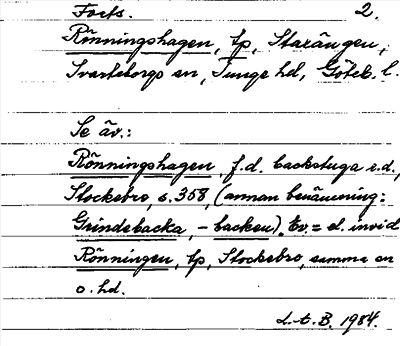 Forts. 2.
Rönningshagen, tp, Starängen,
Svarteborgs sn, Tunge hd, Göteb. l.
Se äv.:
Rönningshagen, f.d. backstuga s.d.,
Stockebro, s. 358, (annan benämning:
Grindebacka, -backen). Ev. = el. invid
Rönningen, tp, Stockebro, samma sn
o. hd.
L.t.B. 1984.